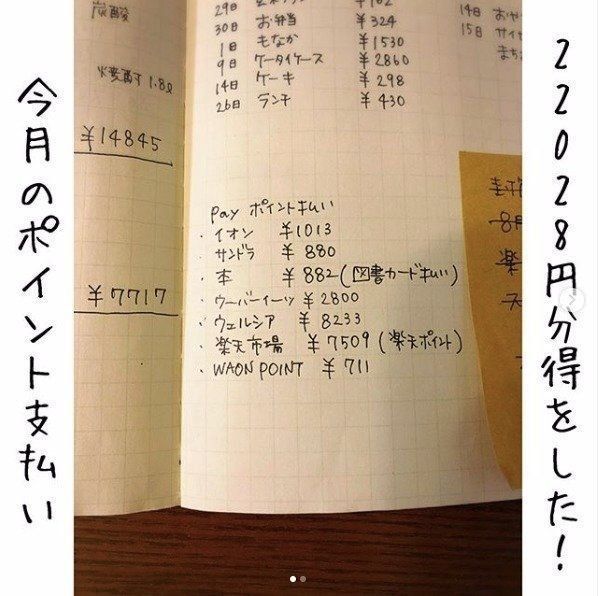 22028円分得をした!
今月のポイント支払い
炭酸
1.8ℓ
¥14845
¥7717
29日
30日 お弁当 ¥324
1日 もなか ¥1530
9日 ケータイケース ¥2860
14日 ケーキ ¥298
26日 ランチ ¥430
14日
15日 サイゼ
pay ポイント払い
・イオン ¥1013
・サンドラ ¥880
・本 ¥882(図書カード払い)
・ウーバーイーツ ¥2800
・ウェルシア ¥8233
・楽天市場 ¥7509(楽天ポイント)
・WAON POINT ¥711
8月
楽
天